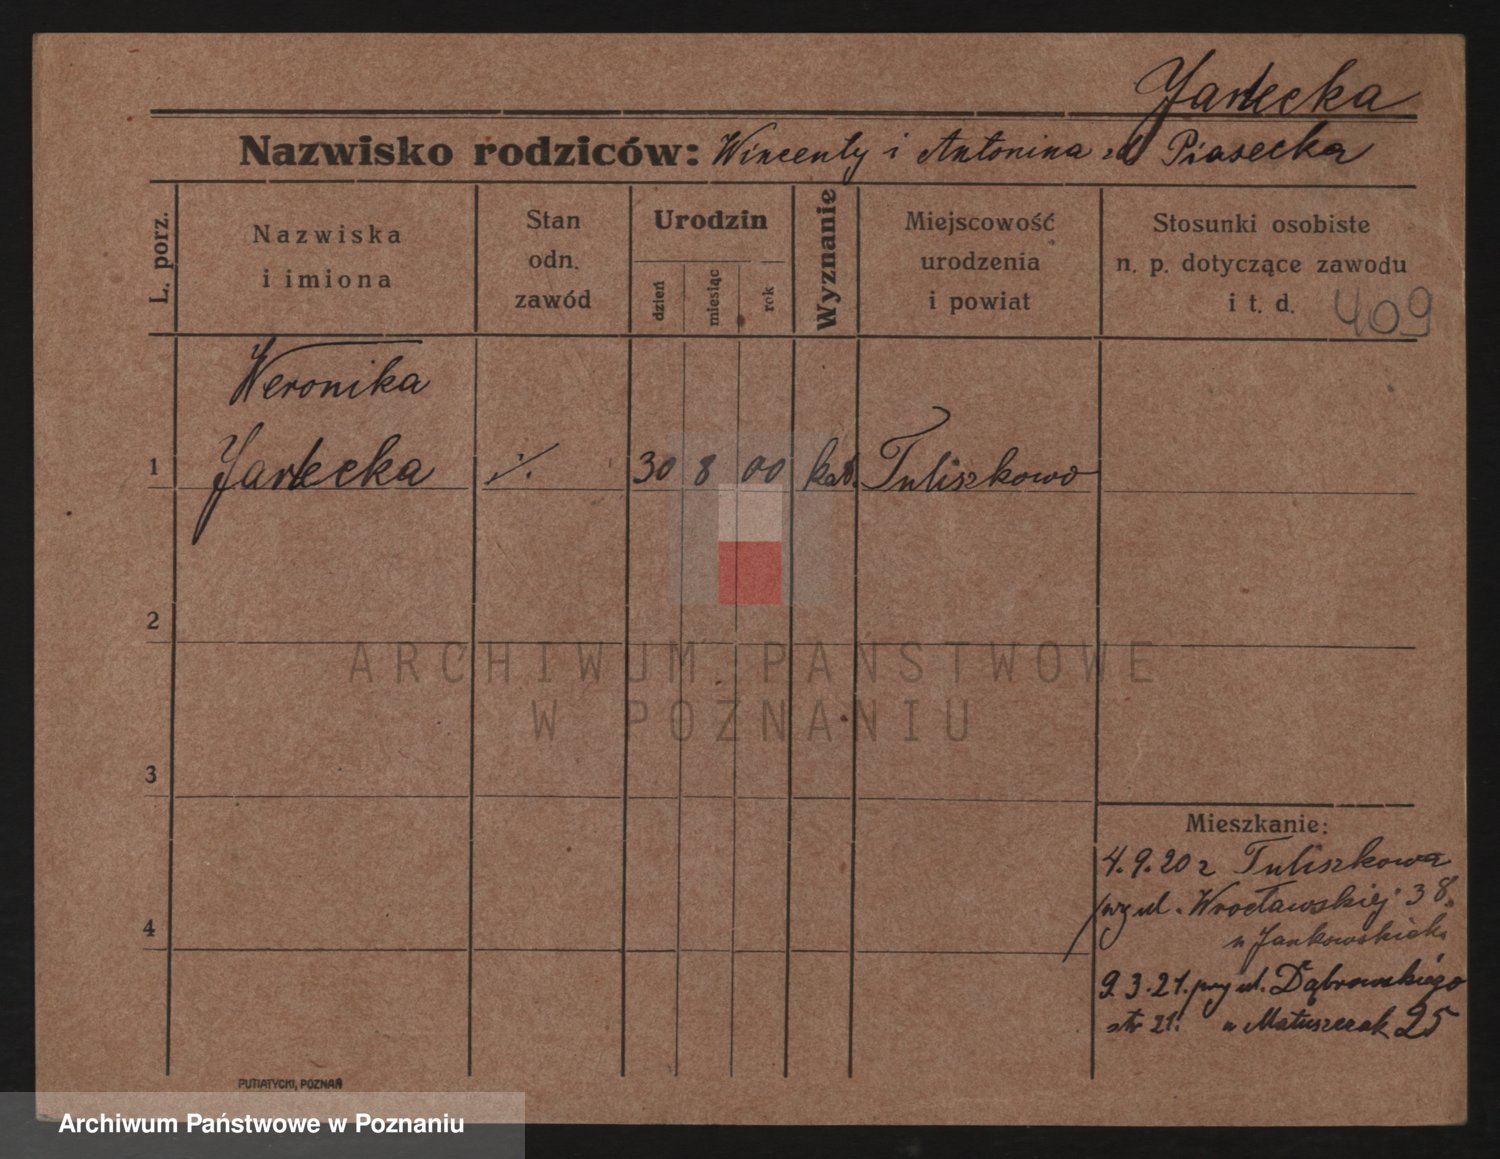 Jarecka
Nazwisko rodziców: Wincenty i Antonina zd Piasecka
L. porz.
Nazwiska
i imiona
Stan
odn.
zawód
Urodzin
dzień
miesiąc
rok
Wyznanie
Miejscowość
urodzenia
i powiat
Stosunki osobiste
n. p. dotyczące zawodu
i t. d.
409
Weronika
1 Jarecka ./. 30 8 00 kat. Tuliszkowo
2
3
4
Mieszkanie:
4.9.20 z Tuliszkowa
przy ul. Wrocławskiej 38.
u Jankowskich.
9.3.21. przy ul. Dąbrowskiego
str 21. u Matuszczak 25
PUTIATYCKI, POZNAŃ
ARCHIWUM PAŃSTWOWE
W POZNANIU
Archiwum Państwowe w Poznaniu